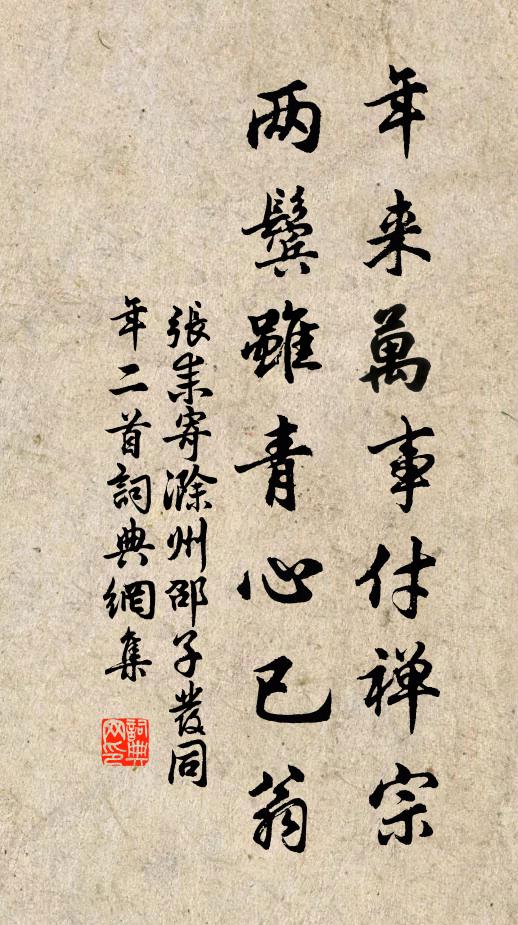 年来萬事付禅宗
两鬢雖青心已翁
張耒寄滁州邵子發同
年二首詞典網集
詞典網印